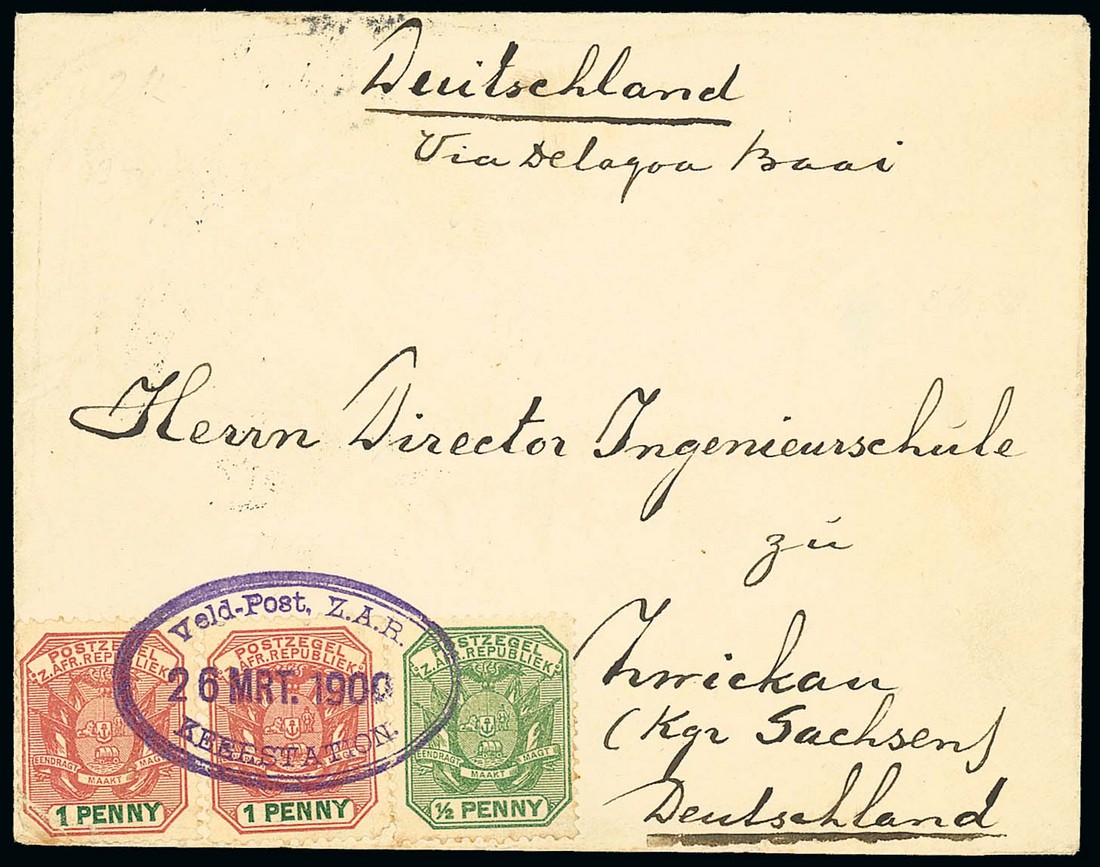 Deutschland
Via Delagoa Baai
Herrn Director Ingenieurschule
zu
Zwickau
(Kgr Sachsen)
Deutschland
Veld-Post, Z.A.R.
26 MRT. 1900
KEERSTATION.
POSTZEGEL
Z.AFR.REPUBLIEK
EENDRAGT MAAKT MAGT
1 PENNY
POSTZEGEL
Z.AFR.REPUBLIEK
EENDRAGT MAAKT MAGT
1 PENNY
POSTZEGEL
Z.AFR.REPUBLIEK
EENDRAGT MAAKT MAGT
½ PENNY